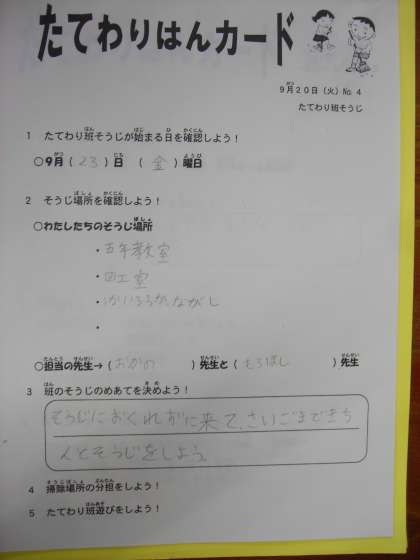 たてわりはんカード
9月20日（火）No.4
たてわり班そうじ
1 たてわり班そうじが始まる日を確認しよう！
○9月（23）日（金）曜日
2 そうじ場所を確認しよう！
○わたしたちのそうじ場所
・五年教室
・図工室
・ろうか、ながし
・
○担当の先生→（おがの）先生と（もろはし）先生
3 班のそうじのめあてを決めよう！
そうじにおくれずに来て、さいごまできち
んとそうじをしよう。
4 掃除場所の分担をしよう！
5 たてわり班遊びをしよう！